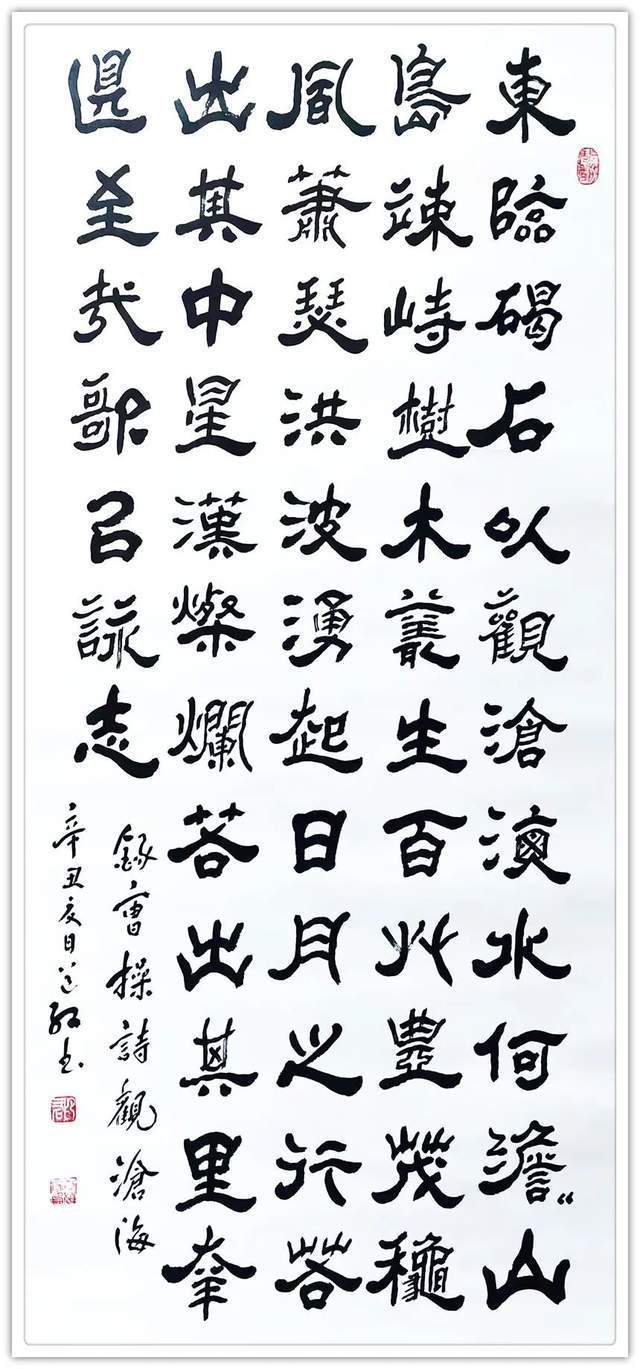 東臨碣石以觀滄海水何澹〻山
島竦峙樹木叢生百艸豐茂穐
風蕭瑟洪波湧起日月之行若
出其中星漢燦爛若出其里幸
甚至哉歌以詠志
錄曹操詩觀滄海
辛丑夏日书